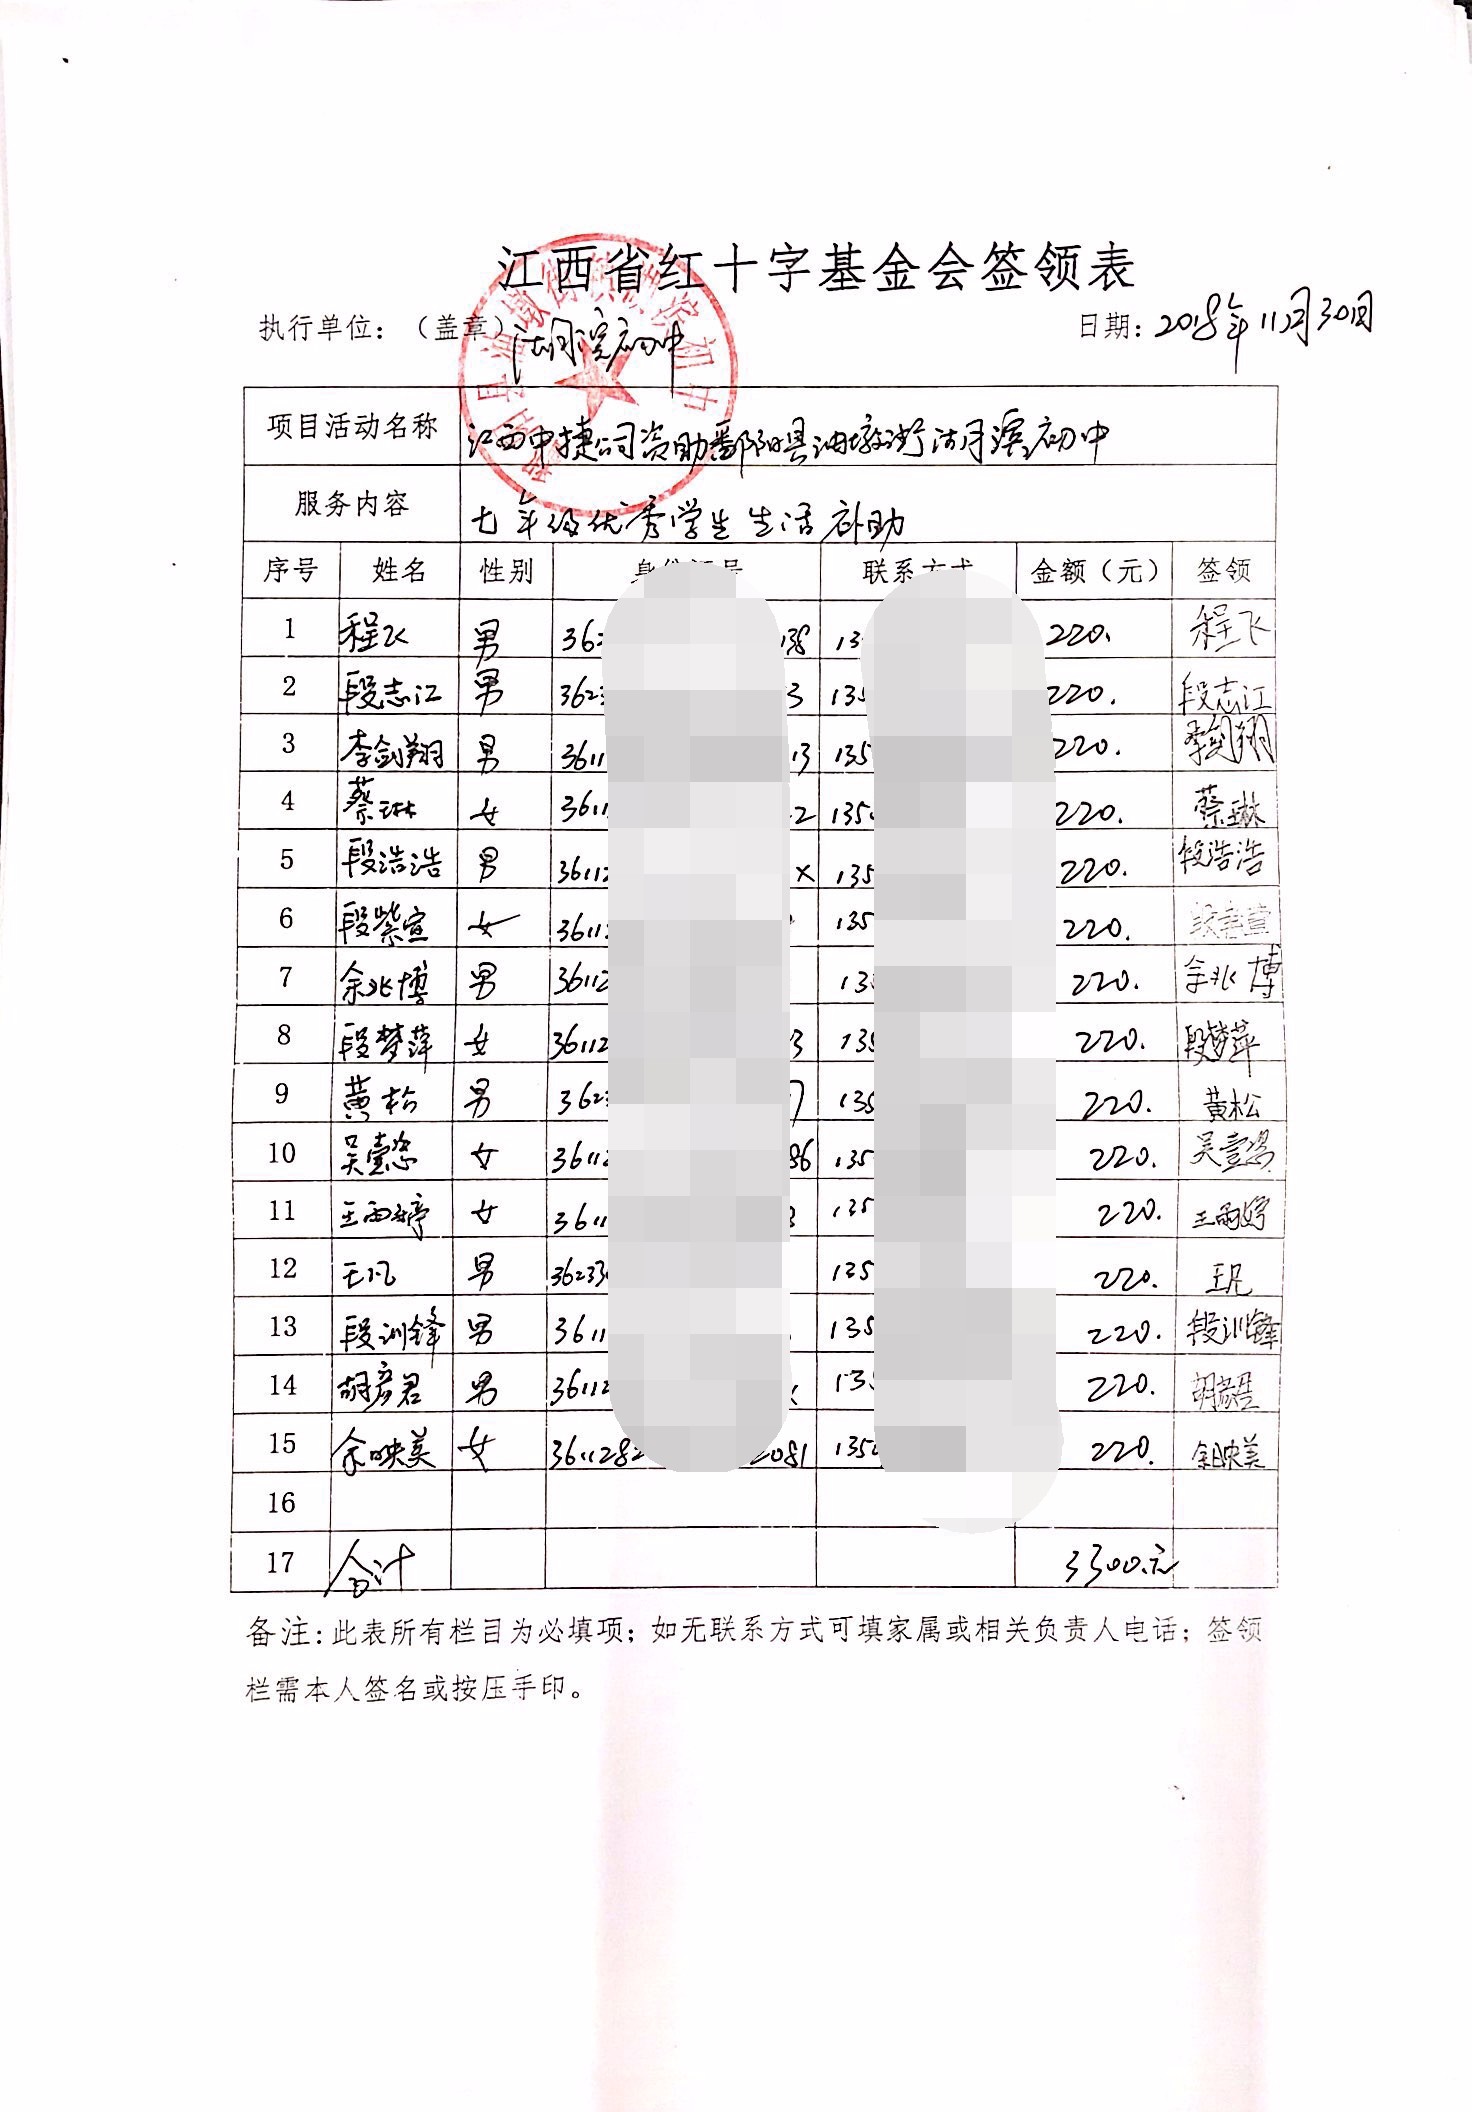 江西省红十字基金会签领表
执行单位：（盖章） 初中 日期：2018年11月30日
项目活动名称 江西中捷公司资助鄱阳县油墩街 初中
服务内容 七年级优秀学生生活补助
序号 姓名 性别 身份证号 联系方式 金额（元） 签领
1 程飞 男 36 138 13 220. 程飞
2 段志江 男 362 3 135 220. 段志江
3 李剑翔 男 3611 13 135 220. 李剑翔
4 蔡琳 女 3611 2 135 220. 蔡琳
5 段浩浩 男 36112 X 135 220. 段浩浩
6 段紫宣 女 3611 135 220. 段紫宣
7 余兆博 男 36112 13 220. 余兆博
8 段梦萍 女 36112 3 135 220. 段梦萍
9 黄松 男 362 7 135 220. 黄松
10 吴壹 女 36112 86 135 220. 吴壹
11 王雨婷 女 3611 3 135 220. 王雨婷
12 王凡 男 36233 135 220. 王凡
13 段训锋 男 3611 135 220. 段训锋
14 胡彦君 男 36112 X 13 220. 胡彦君
15 余映美 女 361128 2081 135 220. 余映美
16
17 合计 3300.元
备注：此表所有栏目为必填项；如无联系方式可填家属或相关负责人电话；签领
栏需本人签名或按压手印。